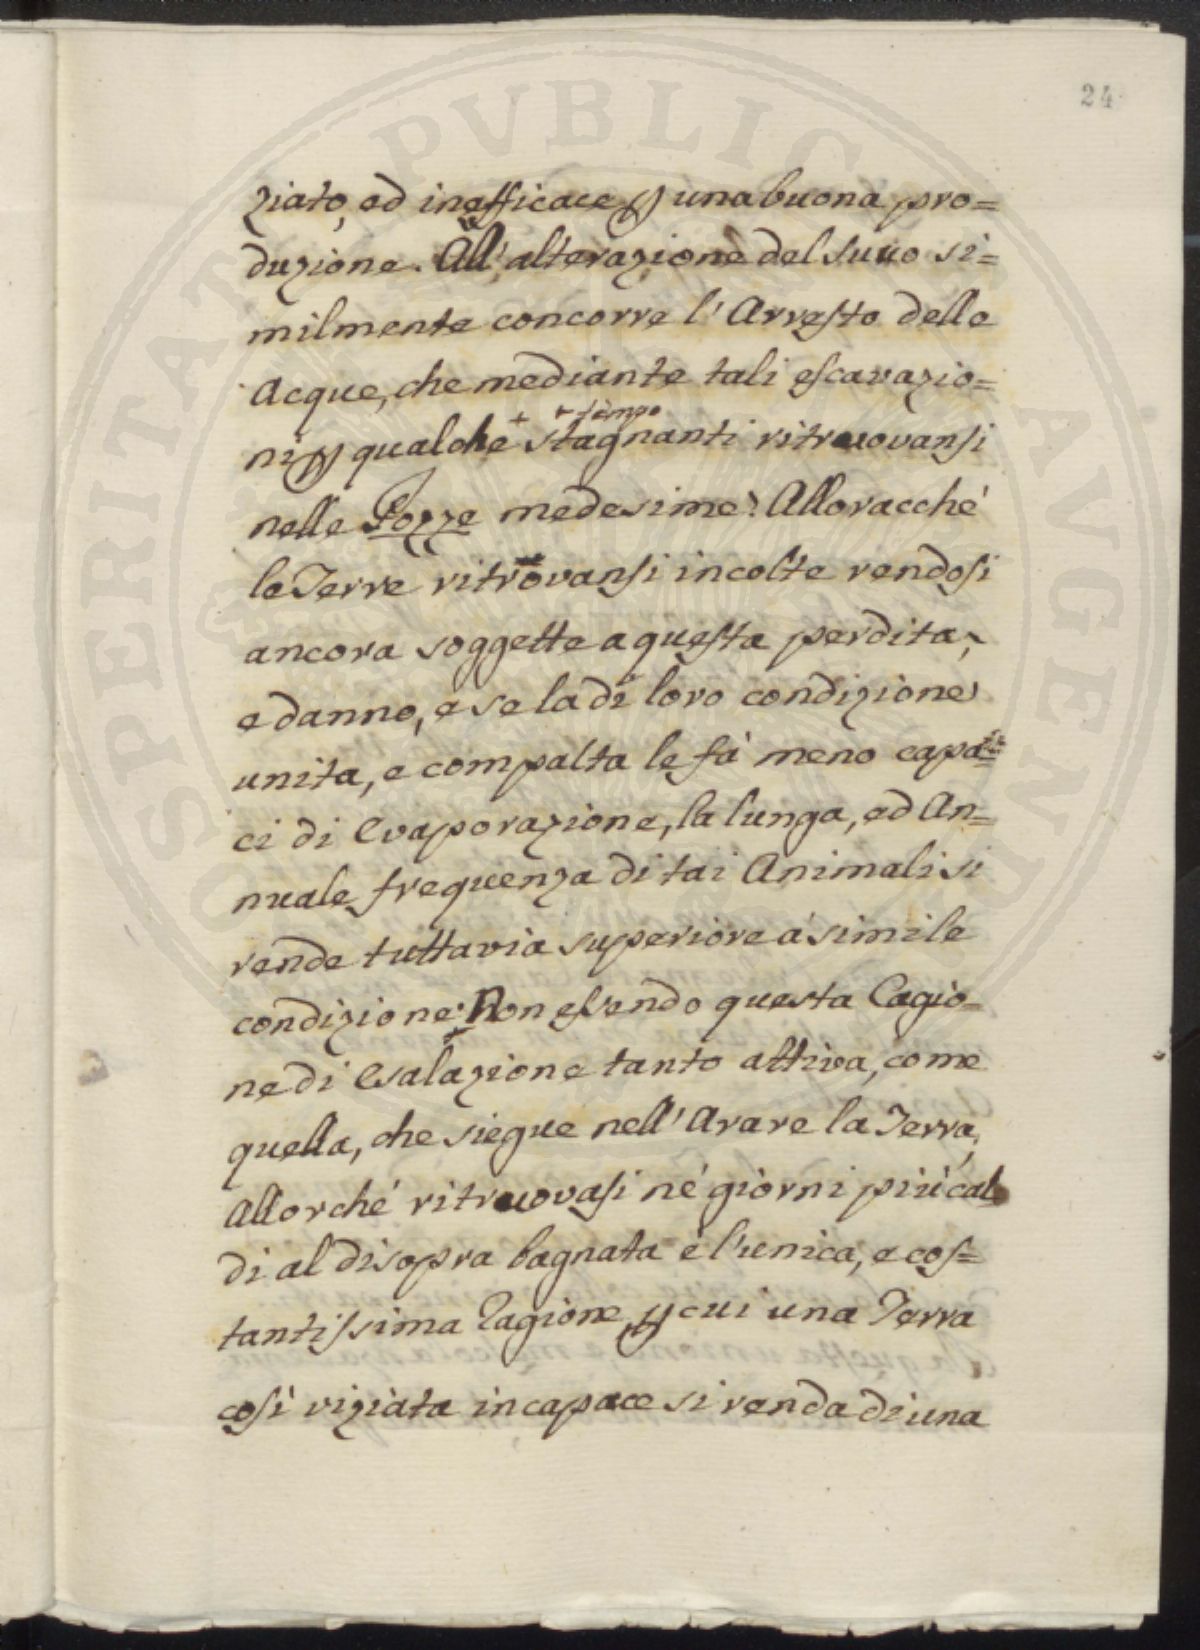 24
ziato, ed inefficace p una buona pro=
duzione. All' alterazione del suuo si=
milmente concorre l' Arresto delle
Acque, che mediante tali escavazio=
+ tempo
ni p qualche + stagnanti ritruovansi
nelle Pozze medesime. Alloracché
le Terre ritrovansi incolte rendosi
ancora soggette a questa perdita,
e danno, e se la di loro condizione
unita, e compalta le fà meno capa=
ci di Evaporazione, la lunga, ed An=
nuale frequenza di tai Animali si
rende tuttavia superiore a simile
condizione: Non essendo questa Cagio=
ne di Esalazione tanto attiva, come
quella, che siegue nell' Arare la Terra,
Allorché ritruovasi né giorni più cal
di al disopra bagnata è l'unica, e cos=
tantissima Cagione, p cui una Terra
così viziata incapace si renda di una
PROSPERITATI PVBLICAE AVGENDAE